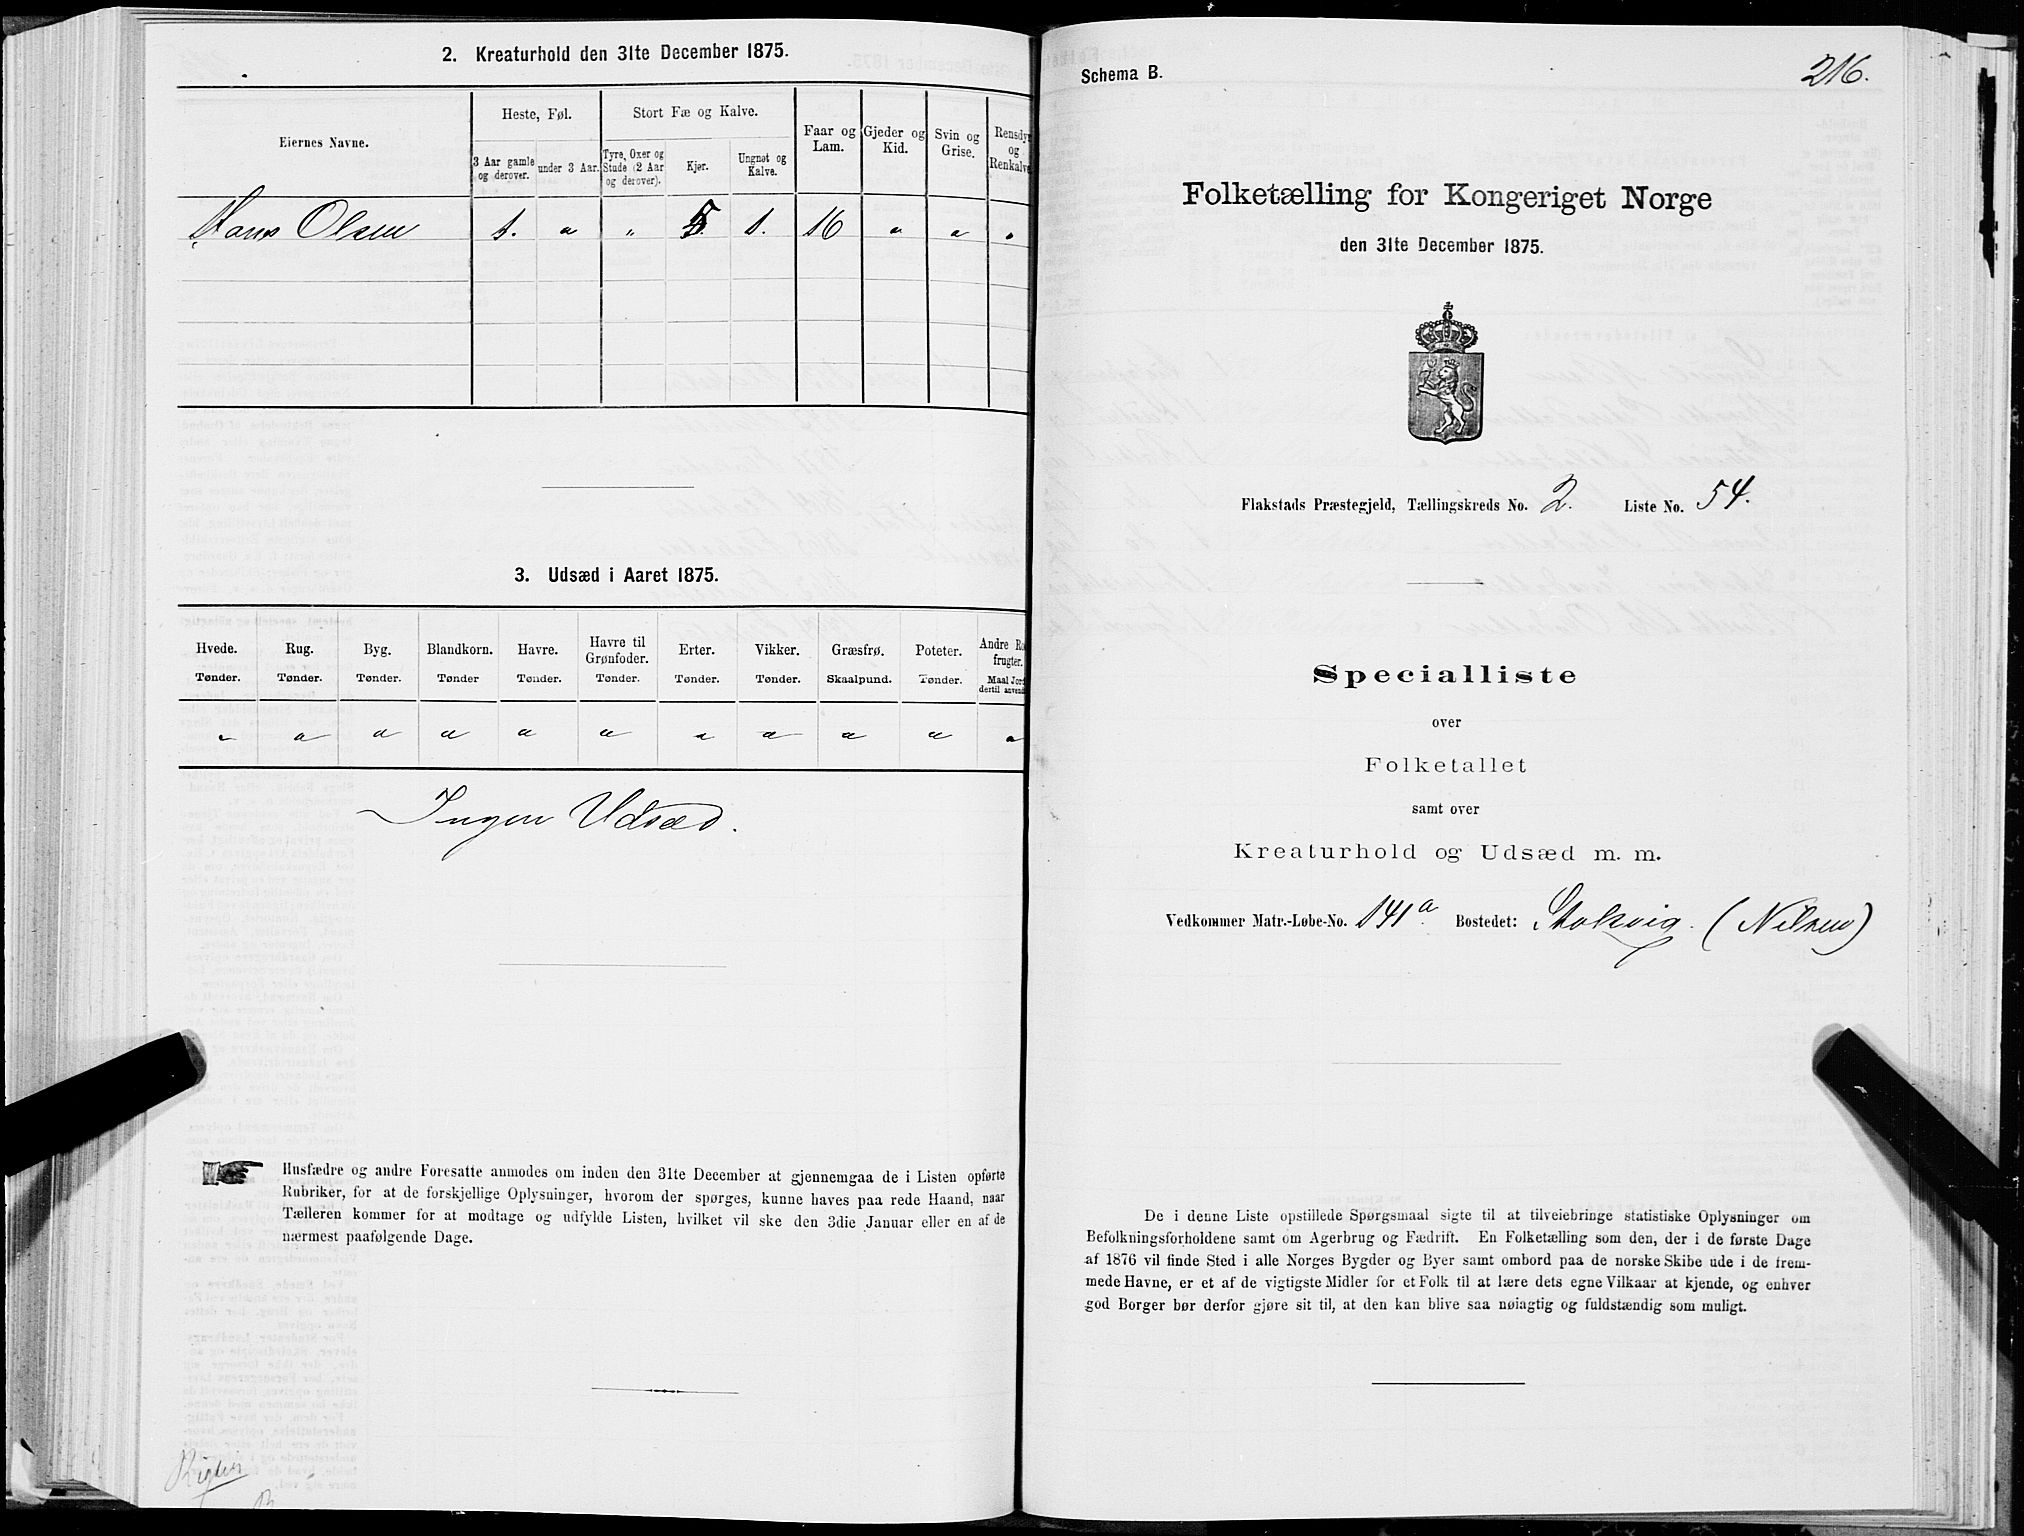 2. Kreaturhold den 31te December 1875.
Eiernes Navne.
Heste, Føl.
Stort Fæ og Kalve.
Faar og Lam.
Gjeder og Kid.
Svin og Grise.
Rensdyr og Renkalve
3 Aar gamle og derover.
under 3 Aar.
Tyre, Oxer og Stude (2 Aar og derover).
Kjør.
Ungnøt og Kalve.
Hans Olsen 1. " " 5. 1. 16 " " "
3. Udsæd i Aaret 1875.
Hvede. Rug. Byg. Blandkorn. Havre. Havre til Grønfoder. Erter. Vikker. Græsfrø. Poteter. Andre Ro frugter.
Tønder. Tønder. Tønder. Tønder Tønder. Tønder. Tønder. Tønder. Skaalpund. Tønder. Maal Jord dertil anvend
" " " " " " " " " " "
Ingen Udsæd.
Husfædre og andre Foresatte anmodes om inden den 31te December at gjennemgaa de i Listen opførte
Rubriker, for at de forskjellige Oplysninger, hvorom der spørges, kunne haves paa rede Haand, naar
Tælleren kommer for at modtage og udfylde Listen, hvilket vil ske den 3die Januar eller en af de
nærmest paafølgende Dage.
Schema B.
216.
Folketælling for Kongeriget Norge
den 31te December 1875.
Flakstads Præstegjeld, Tællingskreds No. 2. Liste No. 54.
Specialliste
over
Folketallet
samt over
Kreaturhold og Udsæd m. m.
Vedkommer Matr.-Løbe-No. 141a Bostedet: Stokvig. (Nilsen)
De i denne Liste opstillede Spørgsmaal sigte til at tilveiebringe statistiske Oplysninger om
Befolkningsforholdene samt om Agerbrug og Fædrift. En Folketælling som den, der i de første Dage
af 1876 vil finde Sted i alle Norges Bygder og Byer samt ombord paa de norske Skibe ude i de frem-
mede Havne, er et af de vigtigste Midler for et Folk til at lære dets egne Vilkaar at kjende, og enhver
god Borger bør derfor gjøre sit til, at den kan blive saa nøiagtig og fuldstændig som muligt.